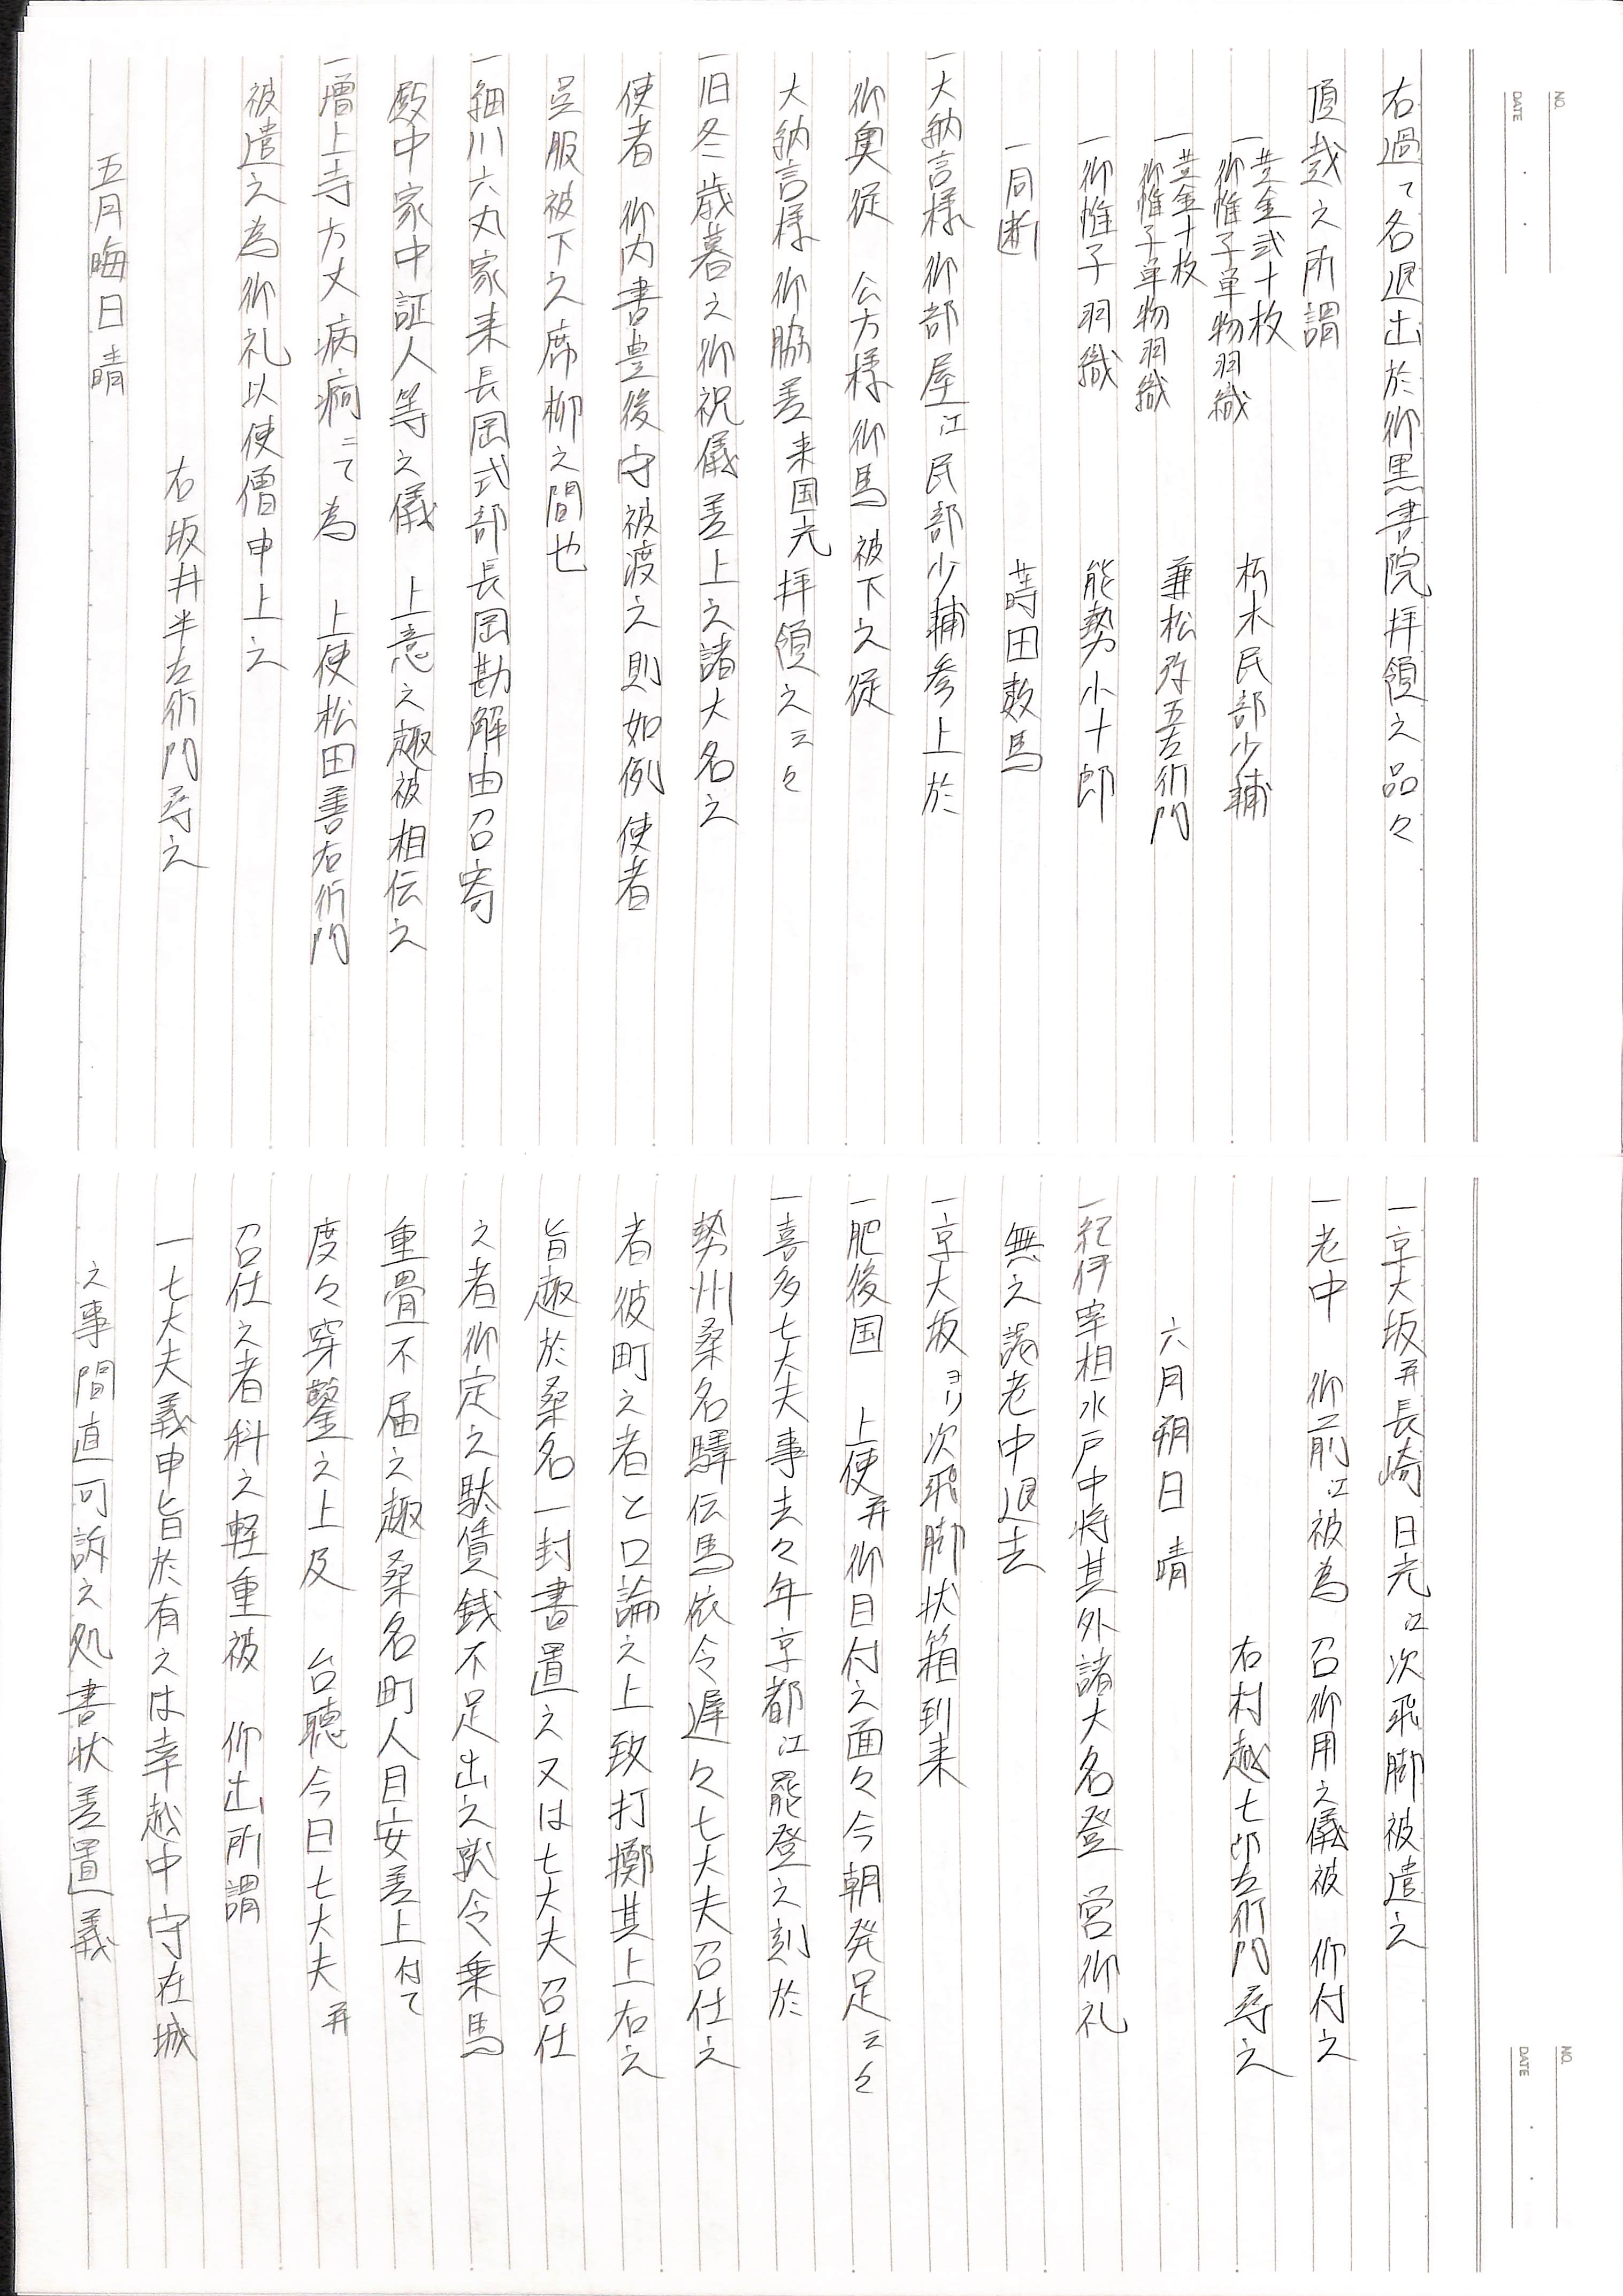 NO.
DATE
右過て各退出於御黒書院拝領之品々
頂戴之所謂
一黄金弐十枚
御帷子単物羽織 朽木民部少輔
一黄金十枚
御帷子単物羽織 兼松弥五左衛門
一御帷子羽織 能勢小十郎
一同断 蒔田数馬
一大納言様御部屋江民部少輔参上於
御奥従 公方様御馬被下之従
大納言様御脇差来国光拝領之云々
一旧冬歳暮之御祝儀差上之諸大名之
使者 御内書豊後守被渡之則如例使者
呉服被下之席柳之間也
一細川六丸家来長岡式部長岡勘解由召寄
殿中家中証人等之儀 上意之趣被相伝之
一増上寺方丈病痾ニて為 上使松田善右衛門
被遣之為御礼以使僧申上之
右坂井半左衛門尋之
五月晦日晴
NO.
DATE
一京大坂并長崎日光江次飛脚被遣之
一老中 御前江被為 召御用之儀被 仰付之
右村越七郎左衛門尋之
六月朔日 晴
一紀伊宰相水戸中将其外諸大名登 営御礼
無之謁老中退去
一京大坂ヨリ次飛脚状箱到来
一肥後国 上使并御目付之面々今朝発足云々
一喜多七大夫事去々年京都江罷登之刻於
勢州桑名驛伝馬依令遅々七大夫召仕之
者彼町之者と口論之上致打擲其上右之
旨趣於桑名一封書置之又は七大夫召仕
之者御定之駄賃銭不足出之就令乗馬
重畳不届之趣桑名町人目安差上付て
度々穿鑿之上及 台聴今日七大夫并
召仕之者科之軽重被 仰出所謂
一七大夫義申旨於有之は幸越中守在城
之事間直可訴之処書状差置義